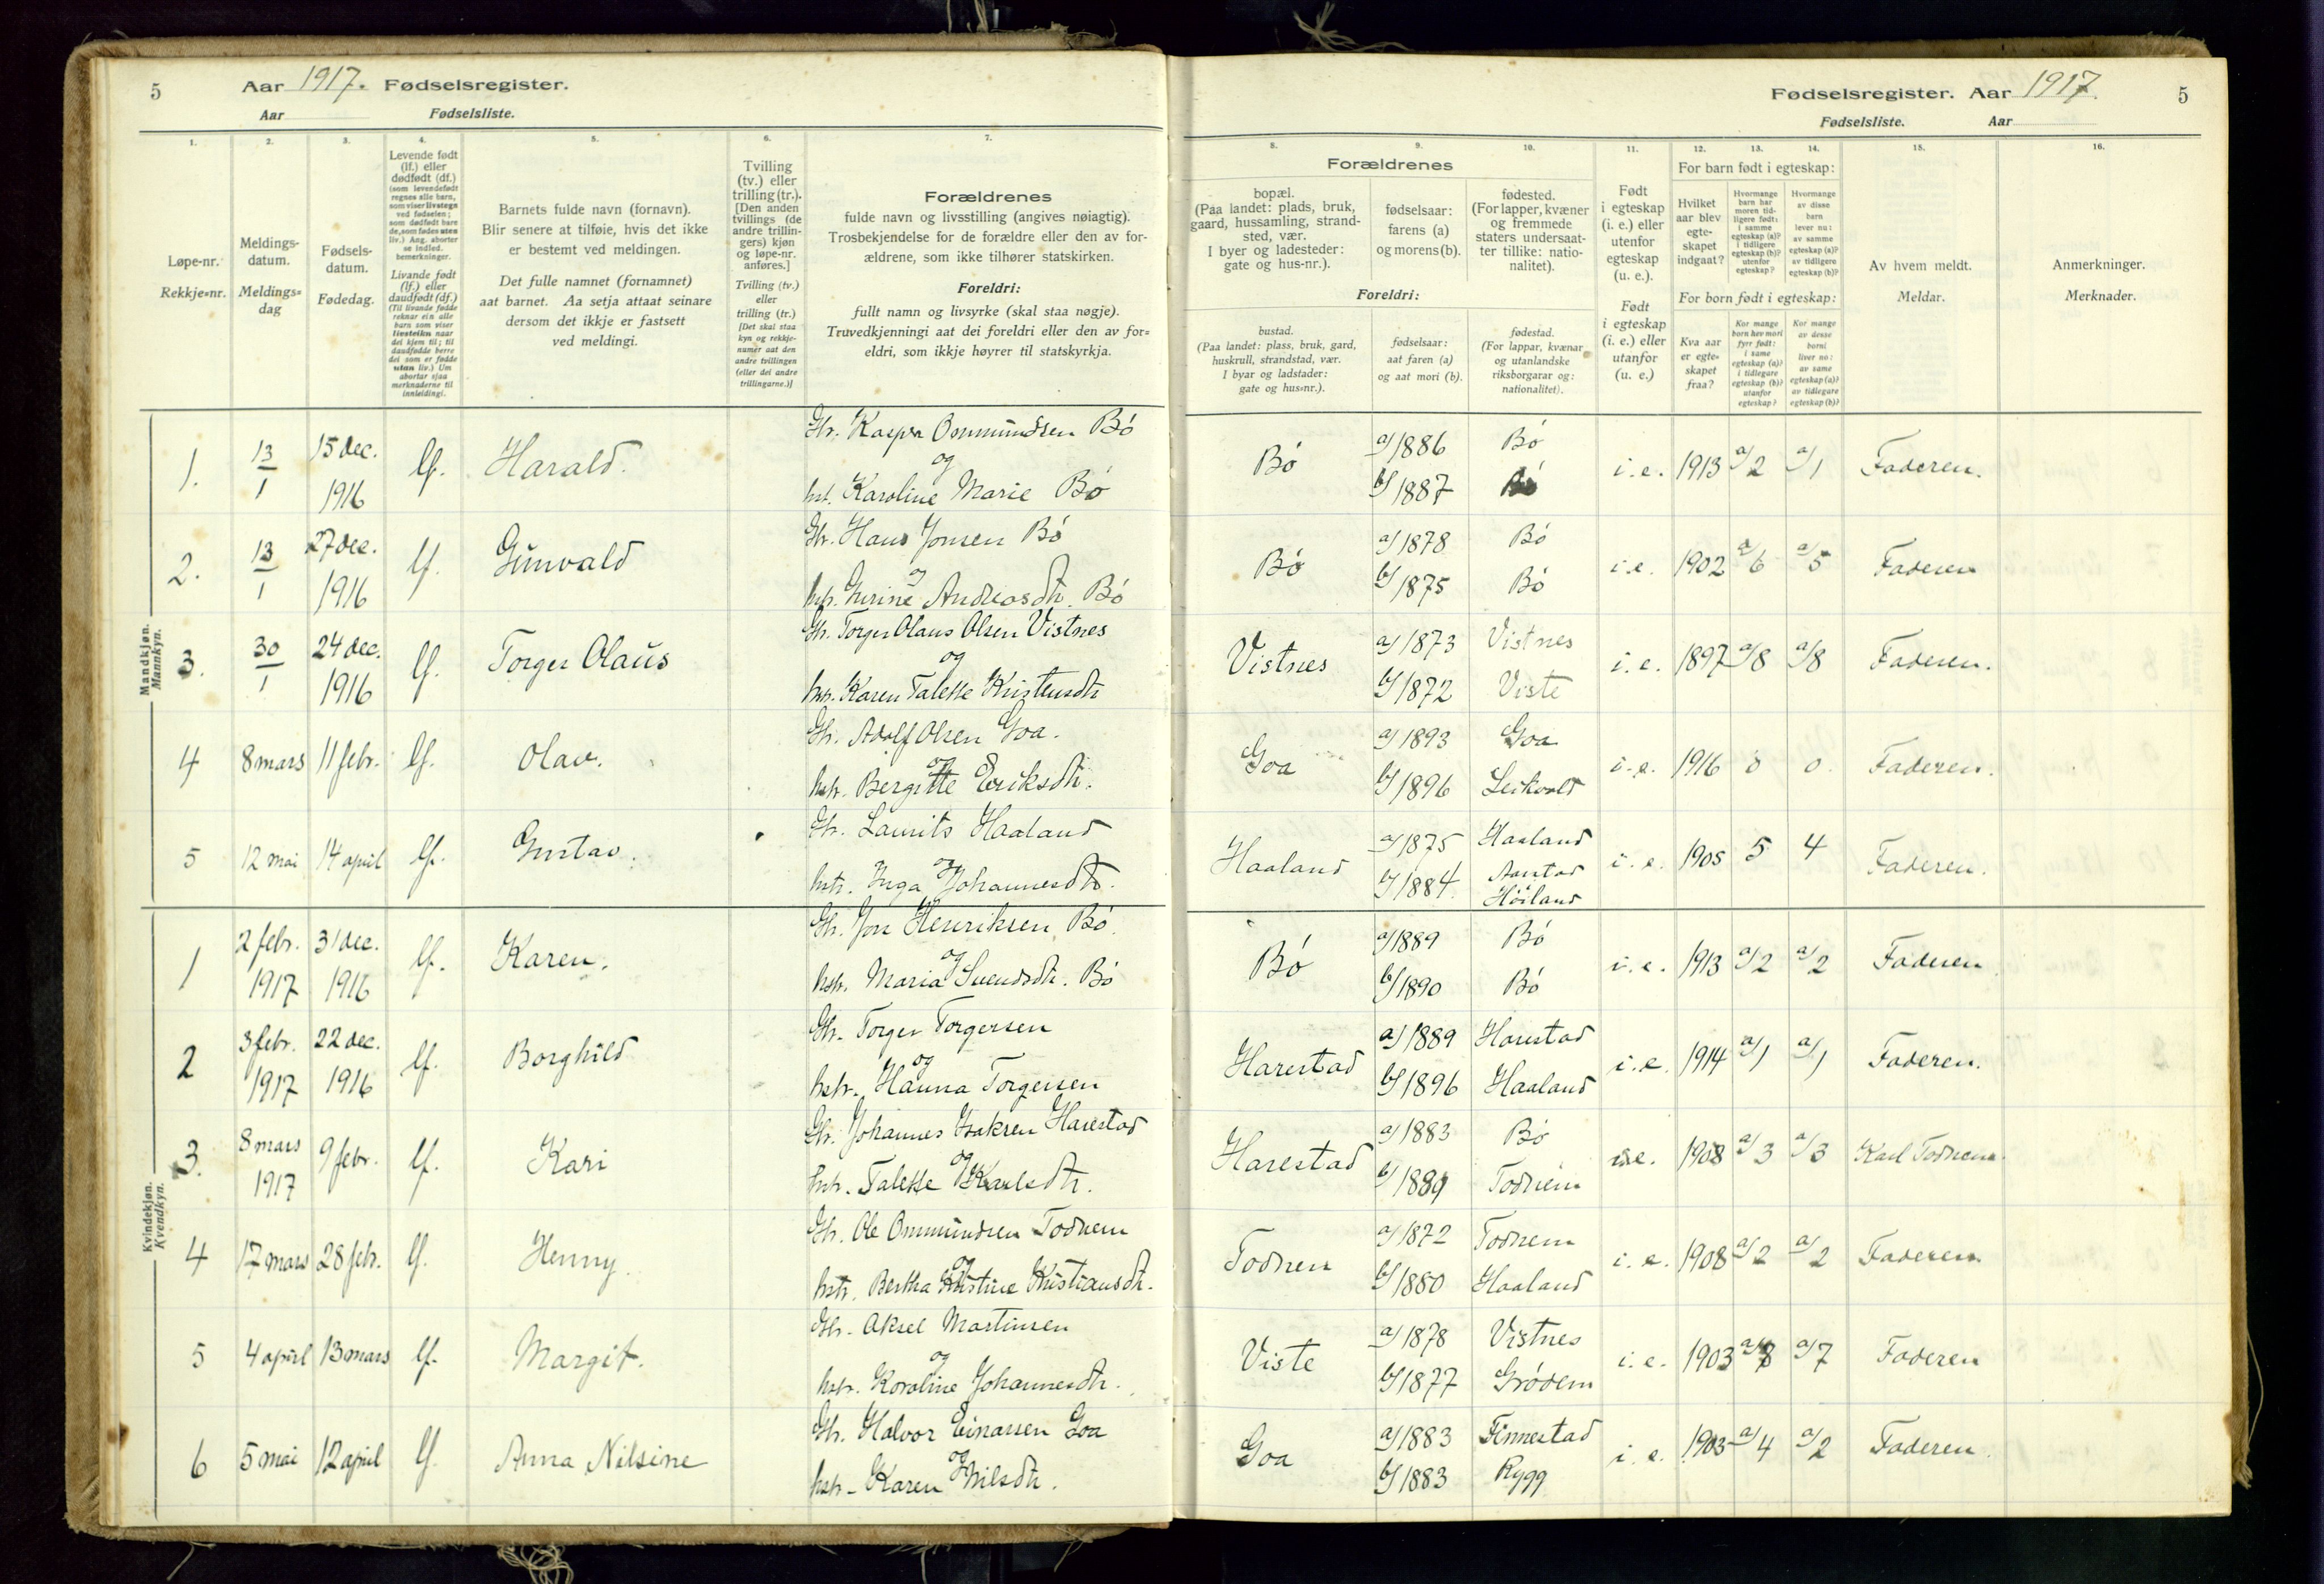 5 Aar 1917. Fødselsregister.
Aar Fødselsliste.
Fødselsregister. Aar 1917. 5
Fødselsliste. Aar
1.
Løpe-nr.
Rekkje=nr.
2.
Meldings-
datum.
Meldings=
dag
3.
Fødsels-
datum.
Fødedag.
4.
Levende født
(lf.) eller
dødfødt (df.)
(som levendefødt
regnes alle barn,
som viser livstegn
ved fødselen;
som dødfødt bare
de, som fødes uten
liv.) Ang. aborter
se indled.
bemerkninger.
Livande født
(lf.) eller
daudfødt (df.)
(Til livande fødde
reknar ein alle
barn som viser
livsteikn naar
dei kjem til; til
daudfødde berre
dei som er fødde
utan liv.) Um
abortar sjaa
merknaderne til
innleidingi.
5.
Barnets fulde navn (fornavn).
Blir senere at tilføie, hvis det ikke
er bestemt ved meldingen.
Det fulle namnet (fornamnet)
aat barnet. Aa setja attaat seinare
dersom det ikkje er fastsett
ved meldingi.
6.
Tvilling
(tv.) eller
trilling (tr.).
[Den anden
tvillings (de
andre trillin-
gers) kjøn
og løpe-nr.
anføres.]
Tvilling (tv.)
eller
trilling (tr.)
[Det skal staa
kyn og rekkje-
numer aat den
andre tvillingen
(eller dei andre
trillingarne.)]
7.
Forældrenes
fulde navn og livsstilling (angives nøiagtig).
Trosbekjendelse for de forældre eller den av for-
ældrene, som ikke tilhører statskirken.
Foreldri:
fullt namn og livsyrke (skal staa nøgje).
Truvedkjenningi aat dei foreldri eller den av for=
eldri, som ikkje høyrer til statskyrkja.
8.
Forældrenes
bopæl.
(Paa landet: plads, bruk,
gaard, hussamling, strand-
sted, vær.
I byer og ladesteder:
gate og hus-nr.).
Foreldri:
bustad.
(Paa landet: plass, bruk, gard,
huskrull, strandstad, vær.
I byar og ladstader:
gate og hus=nr.).
9.
fødselsaar:
farens (a)
og morens (b).
fødselsaar:
aat faren (a)
og aat mori (b).
10.
fødested.
(For lapper, kvæner
og fremmede
staters undersaat-
ter tillike: natio-
nalitet).
fødestad.
(For lappar, kvænar
og utanlandske
riksborgarar og:
nationalitet).
11.
Født
i egteskap
(i. e.) eller
utenfor
egteskap
(u. e.).
Født
i egteskap
(i. e.) eller
utanfor
(u. e.)
12.
For barn født i egteskap:
Hvilket
aar blev
egte-
skapet
indgaat?
For born født i egteskap:
Kva aar
er egte-
skapet
fraa?
13.
Hvormange
barn har
moren tid-
ligere født:
i samme
egteskap (a)?
i tidligere
egteskap (b)?
utenfor
egteskap?
Kor mange
born hev mori
fyrr født:
i same
egteskap (a)?
i tidlegare
egteskap (b)?
utanfor
egteskap?
14.
Hvormange
av disse
barn
lever nu:
av samme
egteskap (a)?
av tidligere
egteskap (b)?
Kor mange
av desse
borni
liver no:
av same
egteskap (a)?
av tidlegare
egteskap (b)?
15.
Av hvem meldt.
Meldar.
16.
Anmerkninger.
Merknader.
Mandkjøn.
Mannkyn.
1. 13/1 15 dec. 1916 lf. Harald.
Gbr. Kasper Ommundsen Bö
og
hst. Karoline Marie Bö
Bö a/1886 b/1887 Bö Bö i. e. 1913 a/2 a/1 Faderen.
2. 13/1 27 dec. 1916 lf. Gunvald
Gbr. Hans Jonsen Bö
og
hstr. Gurine Andreasdtr. Bö
Bö a/1878 b/1875 Bö Bö i. e. 1902 a/6 a/5 Faderen
3. 30/1 24 dec. 1916 lf. Torger Olaus
Gbr. Torger Olaus Olsen Vistnes
og
hstr. Karen Talette Kristensdtr
Vistnes a/1873 b/1872 Vistnes Viste i. e. 1897 a/8 a/8 Faderen.
4 8 mars 11 febr. lf. Olav.
Gbr. Adolf Olsen Goa.
og
hstr. Bergitte Eriksdtr.
Goa a/1893 b/1896 Goa Leikvold i. e. 1916 0 0 Faderen.
5 12 mai 14 april lf. Gustav.
Gbr. Laurits Haaland
og
hstr. Inga Johannesdtr.
Haaland a/1875 b/1884 Haaland Aastad Höiland i. e. 1905 5 4 Faderen.
Kvindekjøn.
Kvendkyn.
1 2 febr. 1917 31 dec. 1916 lf. Karen.
Gbr. Jon Henriksen Bö.
og
hstr. Maria Svendsdtr. Bö
Bö a/1889 b/1890 Bö Bö i. e. 1913 a/2 a/2 Faderen
2 3 febr. 1917 22 dec. 1916 lf. Borghild
Gbr. Torger Torgersen
og
hstr. Hanna Torgersen
Harestad a/1889 b/1896 Harestad Haaland i. e. 1914 a/1 a/1 Faderen.
3. 8 mars 1917 9 febr. lf. Kari
Gbr. Johannes Isaksen Harestad
og
hstr. Talette Karlsdtr.
Harestad a/1883 b/1889 Bö Todnem i.e. 1908 a/3 a/3 Karl Todnem.
4 17 mars 28 febr. lf. Henny.
Gbr. Ole Ommundsen Todnem
og
hstr. Bertha Kristine Kristiansdtr.
Todnem a/1872 b/1880 Todnem Haaland i. e. 1908 a/2 a/2 Faderen
5 4 april 13 mars lf. Margit.
Gbr. Aksel Martinsen
og
hstr. Karoline Johannesdtr.
Viste a/1878 b/1877 Vistnes Grödem i. e. 1903 a/8 a/7 Faderen
6 5 mai 12 april lf. Anna Nilsine
Gbr. Halvor Einarsen Goa
og
hstr. Karen Nilsdtr.
Goa a/1883 b/1883 Finnestad Rygg i. e. 1903 a/4 a/2 Faderen.